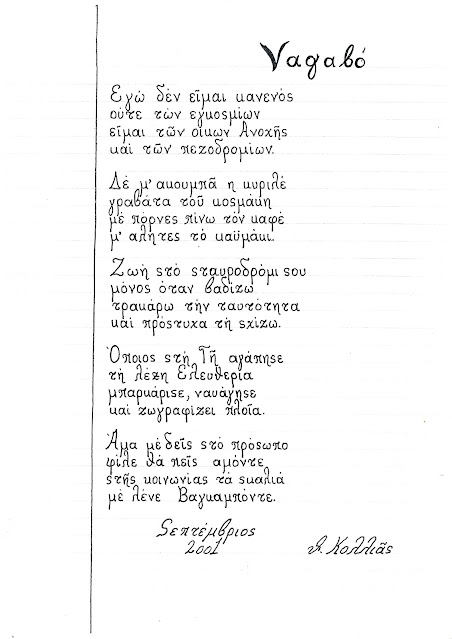 Vagabó
Εγὼ δὲν εἶμαι κανενός
οὔτε τῶν εγκοσμίων
εἶμαι τῶν οίκων Ανοχῆς
καὶ τῶν πεζοδρομίων.
Δέ μ' ακουμπᾶ η κυριλέ
γραβάτα τοῦ κοσμάκη
μὲ πόρνες πίνω τὸν καφέ
μ' αλῆτες τὸ καϋμάκι.
Ζωὴ στὸ σταυροδρόμι σου
μόνος ὅταν βαδίζω
τρακάρω τὴν ταυτότητα
καὶ πρόστυχα τὴ σκίζω.
Ὁποιος στὴ Γῆ αγάπησε
τὴ λέξη Ελευθερία
μπαρκάρισε, ναυάγησε
καὶ ζωγραφίζει πλοῖα.
Ἁμα μὲ δεῖς στὸ πρόσωπο
φίλε θὰ πεῖς αμόντε
στῆς κοινωνίας τὰ σκαλιά
μὲ λένε Βαγκαμπόντε.
Σεπτέμβριος
2001
Α. Κολλιᾶς